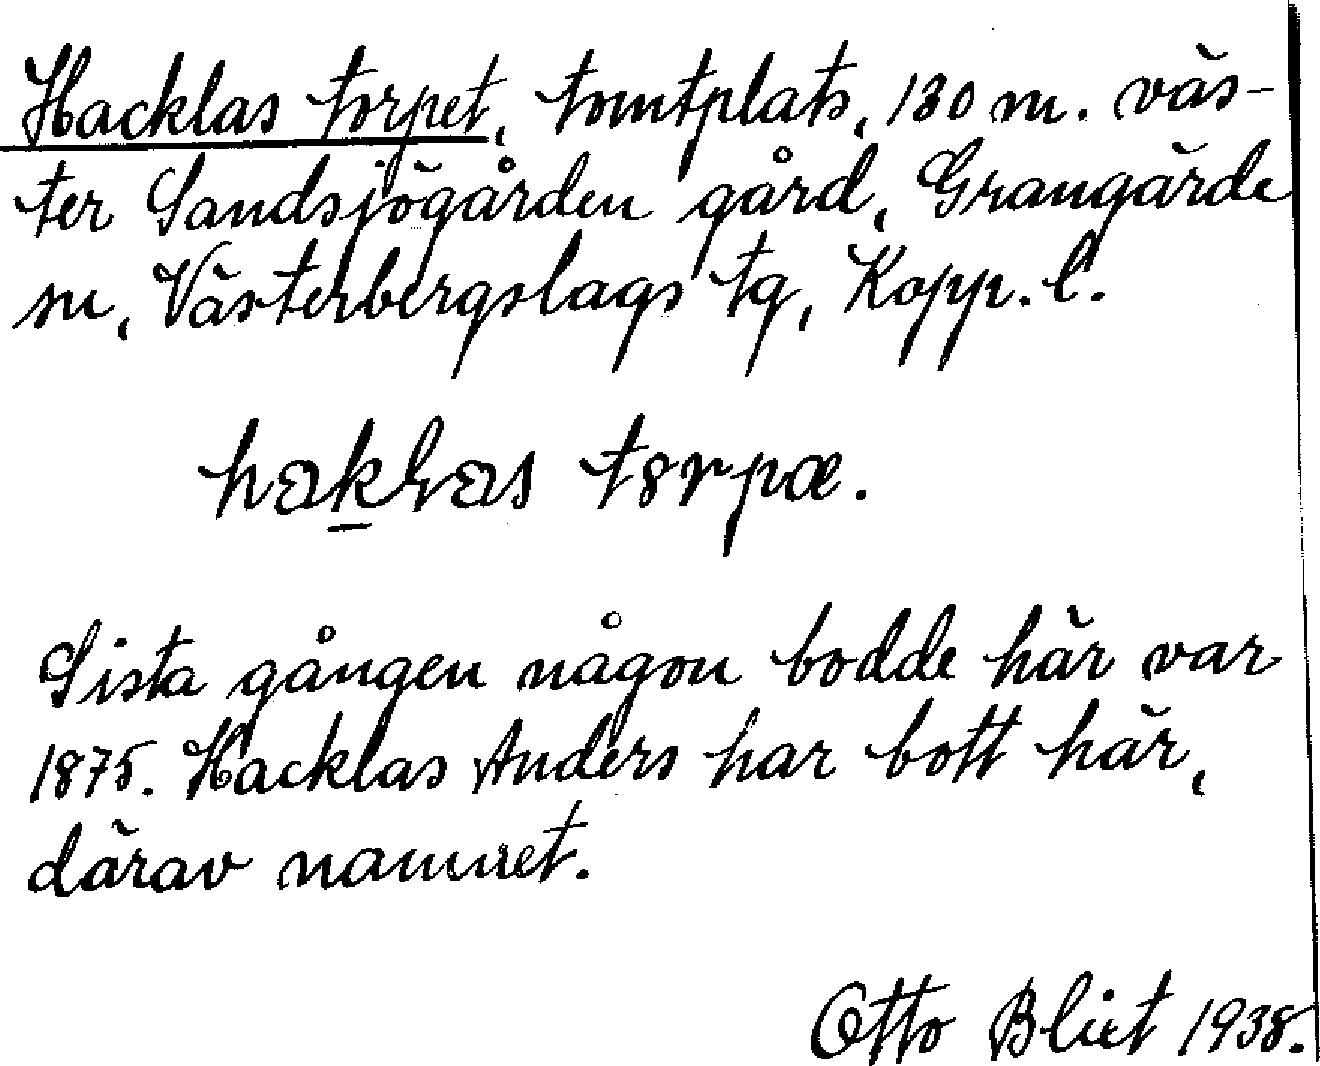 Hacklas torpet, tomtplats, 130 m. väs-
ter Sandsjögården gård, Grangärde
sn, Västerbergslags tg, Kopp. l.
haklas t8rpæ.
Sista gången någon bodde här var
1875. Hacklas Anders har bott här,
därav namnet.
Otto Blixt 1938.